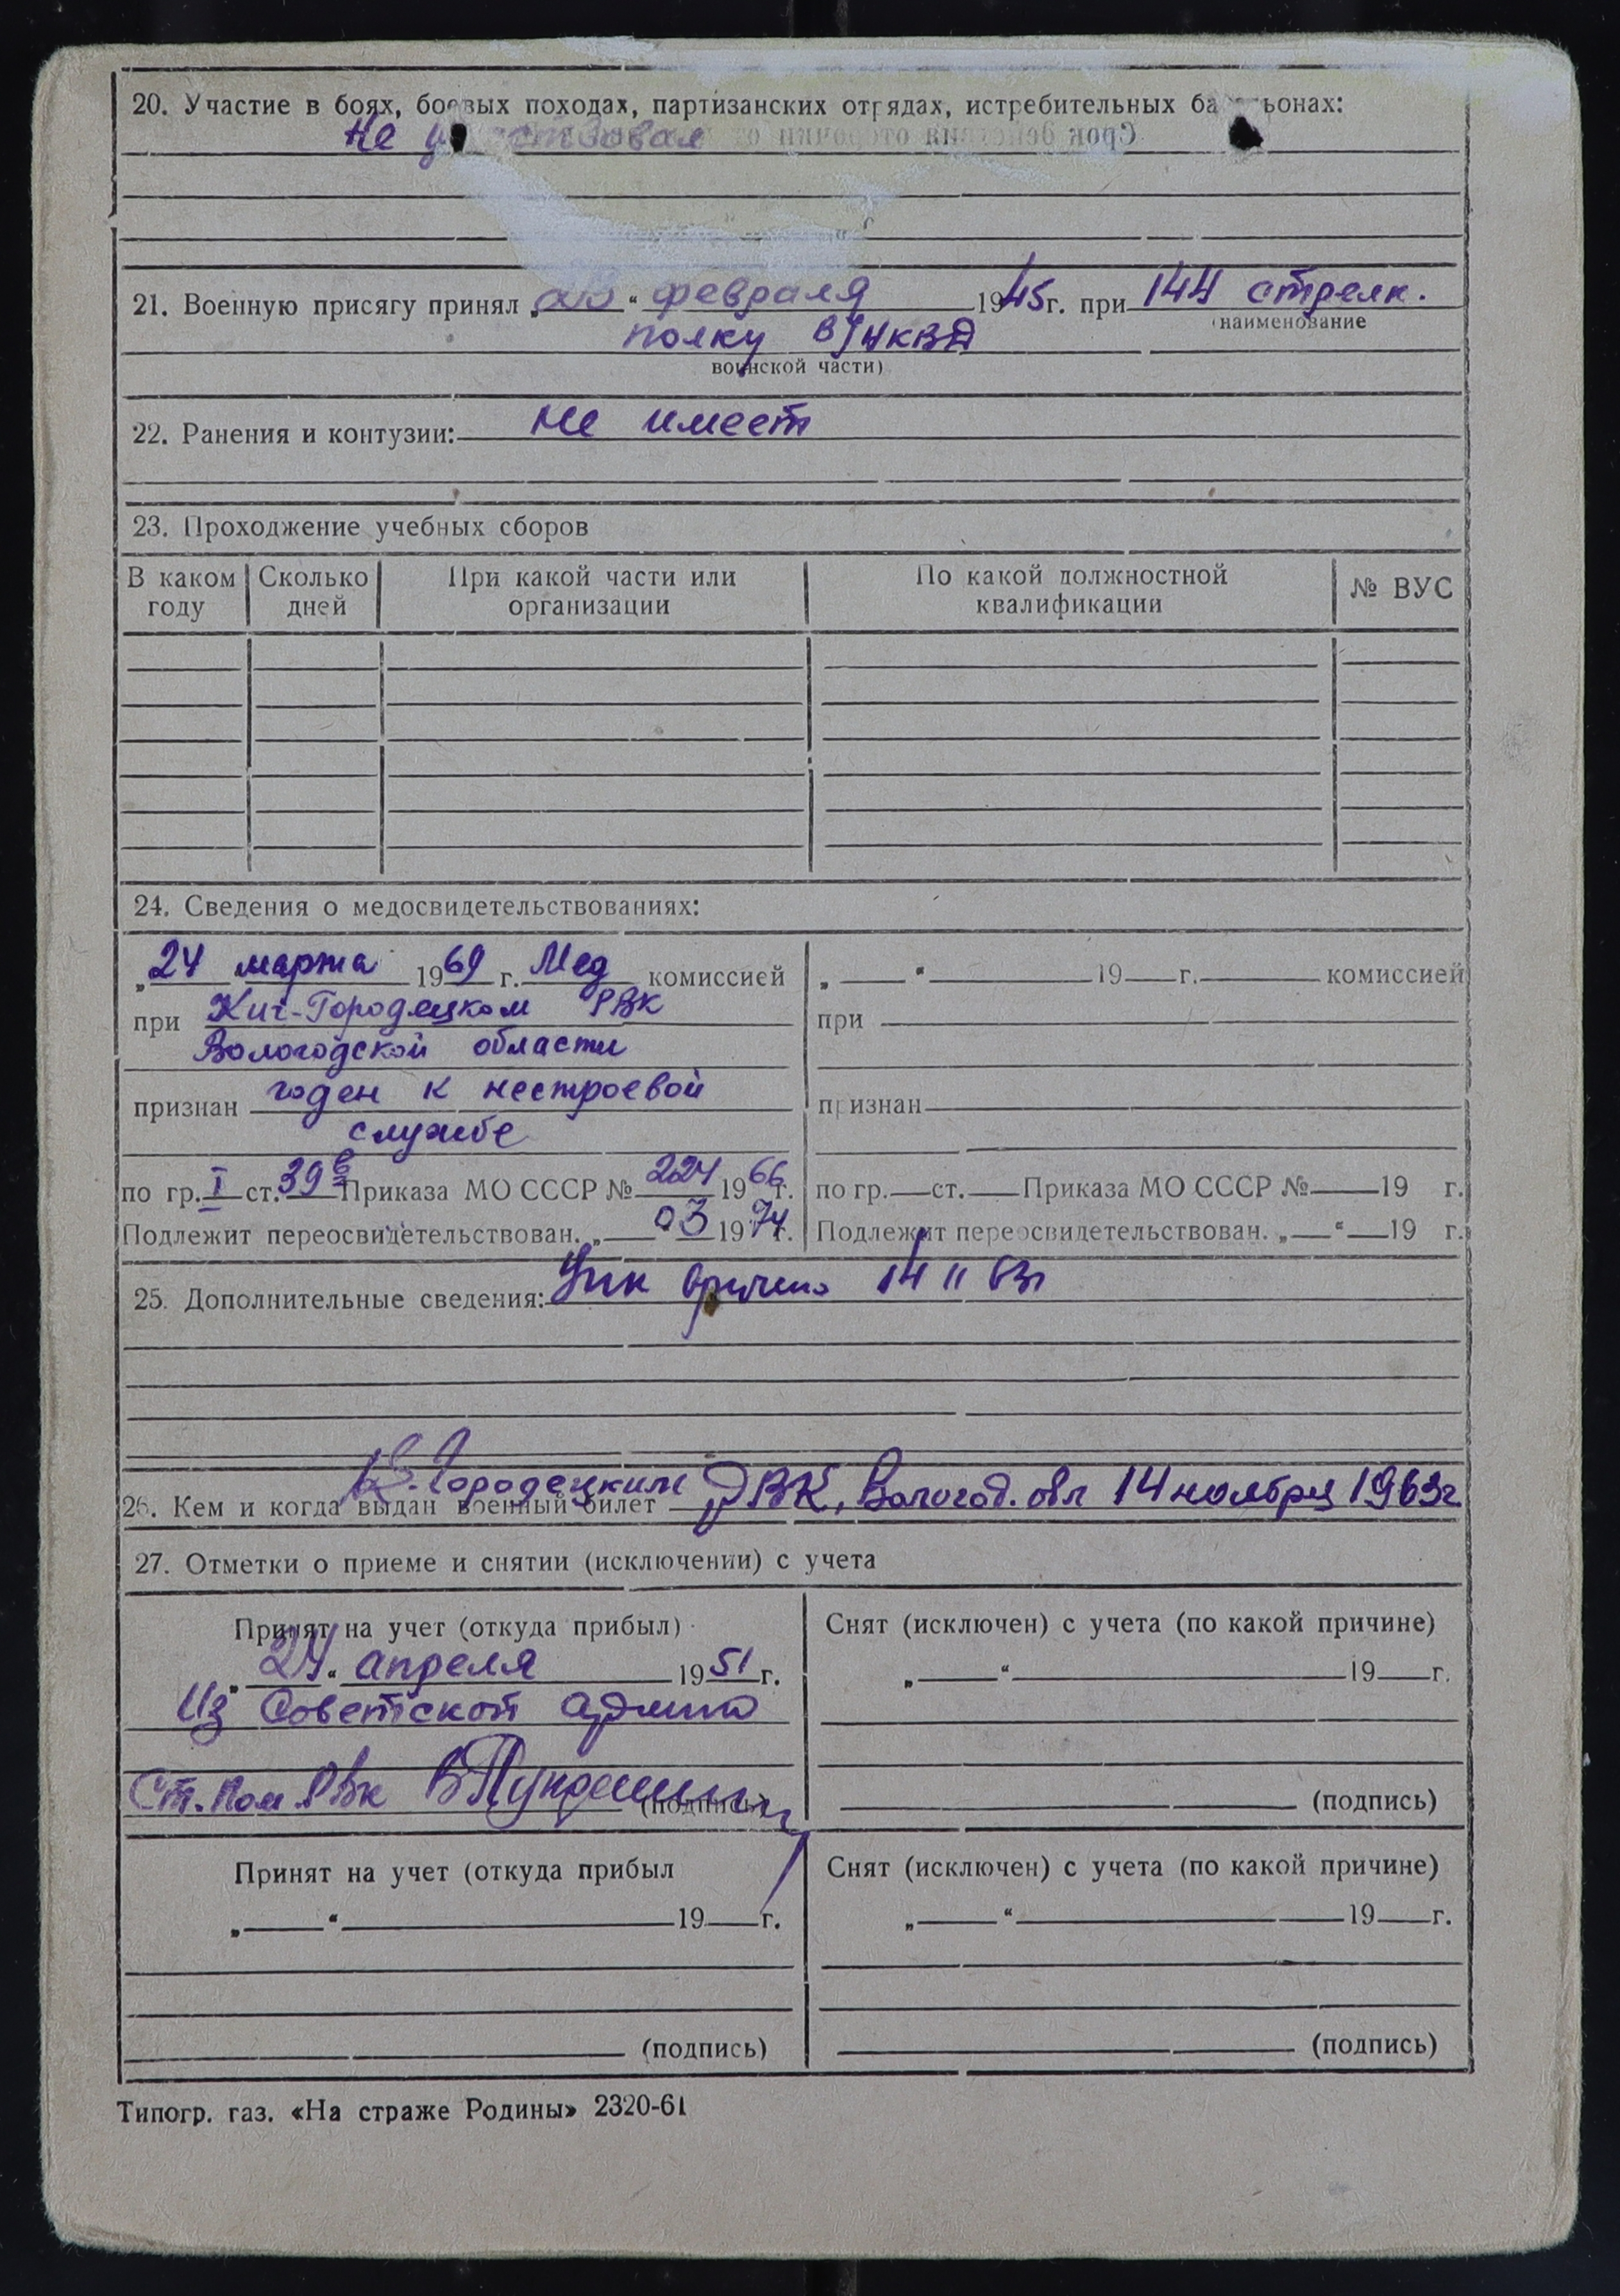 20. Участие в боях, боевых походах, партизанских отрядах, истребительных ба ьонах:
Не у ствовал
21. Военную присягу принял „23“ февраля 1945г. при 144 стрелк.
(наименование
полку В/НКВД
воинской части)
22. Ранения и контузии: не имеет
23. Проходжение учебных сборов
В каком году Сколько дней При какой части или организации По какой должностной квалификации № ВУС
24. Сведения о медосвидетельствованиях:
„24 марта 1969 г. Мед комиссией
при Кич-Городецком РВК
Вологодской области
признан годен к нестроевой
службе
по гр. I ст. 39в Приказа МО СССР № 224 1966г.
Подлежит переосвидетельствован. „ “ 03 1974г.
„ “ 19 г. комиссией
при
признан
по гр. ст. Приказа МО СССР № 19 г.
Подлежит переосвидетельствован. „ “ 19 г.
25. Дополнительные сведения: вручено 14 11 63г
К. Городецким
26. Кем и когда выдан военный билет РВК, Вологод. обл 14 ноября 1963г
27. Отметки о приеме и снятии (исключении) с учета
Принят на учет (откуда прибыл)
„24“ апреля 1951 г.
Из Советской армии
Ст. пом. РВК
(подпись)
Снят (исключен) с учета (по какой причине)
„ “ 19 г.
(подпись)
Принят на учет (откуда прибыл
„ “ 19 г.
(подпись)
Снят (исключен) с учета (по какой причине)
„ “ 19 г.
(подпись)
Типогр. газ. «На страже Родины» 2320-61